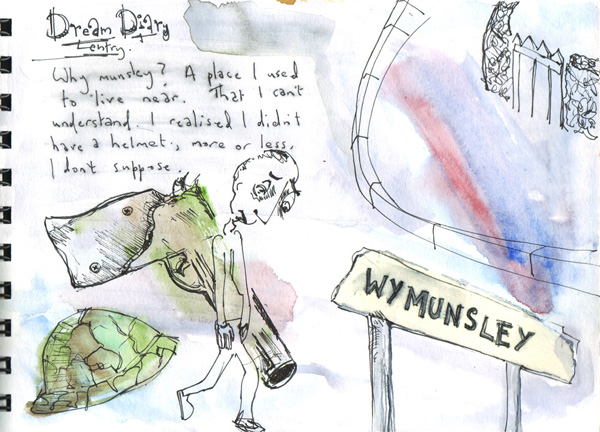 Dream Diary
entry.
Why munsley? A place I used
to live near. That I can't
understand. I realised I didn't
have a helmet, more or less,
I don't suppose.
WYMUNSLEY